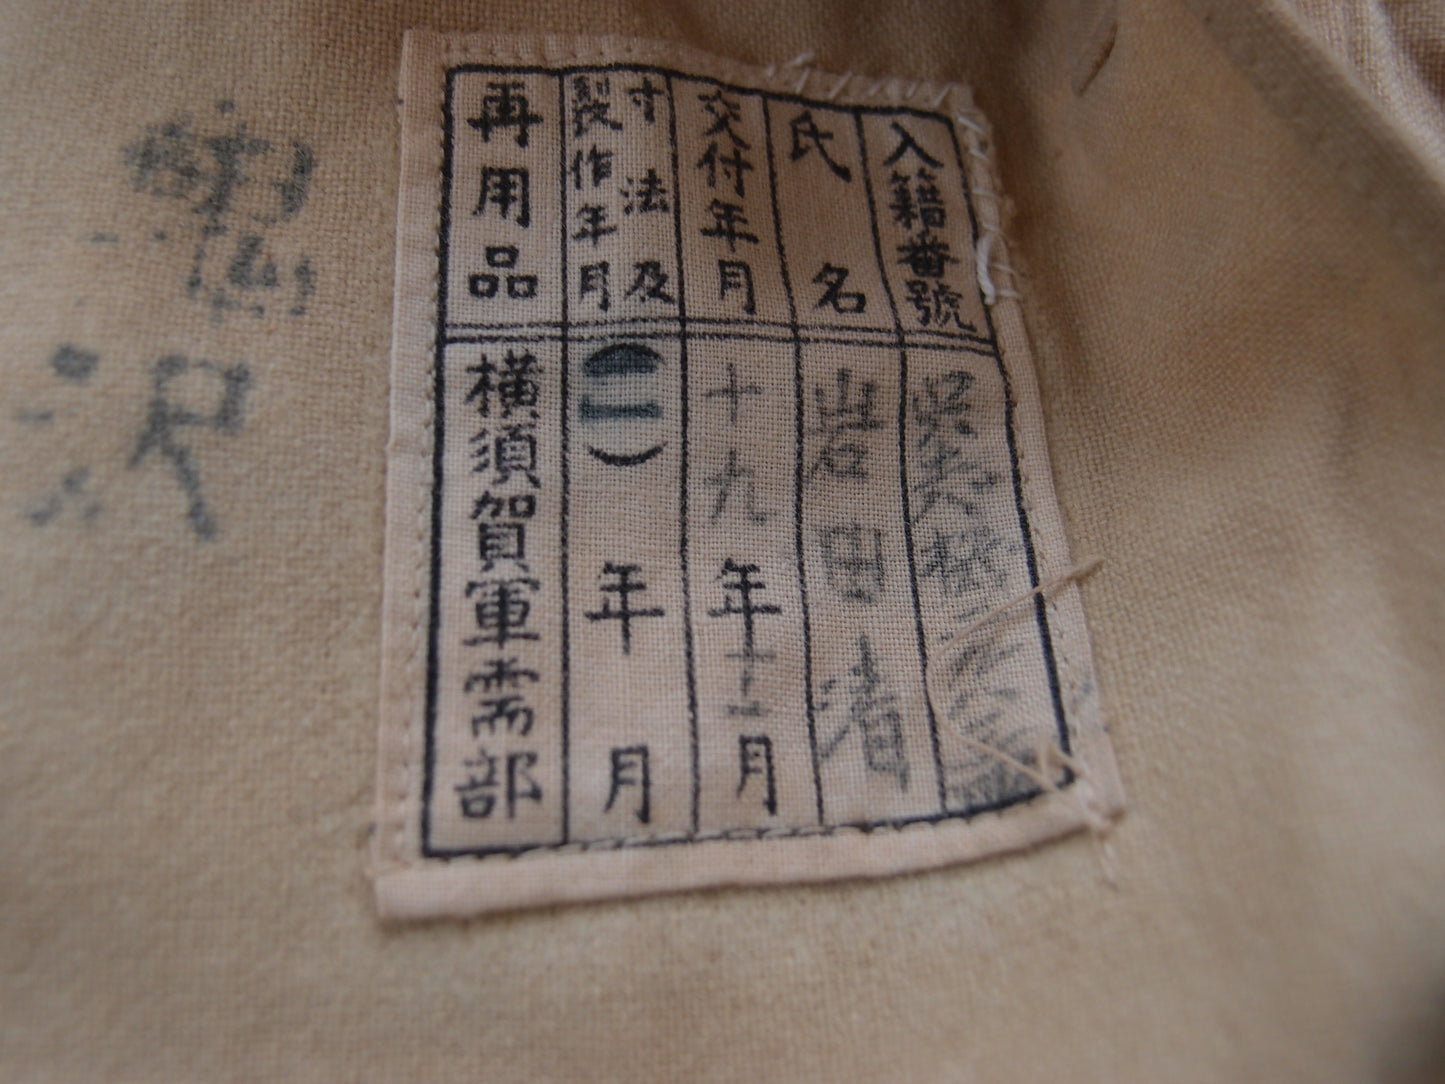 入籍番號
氏名 岩田清
交付年月 十九年十二月
寸法及製作年月 (一) 年 月
再用品 横須賀軍需部
沢